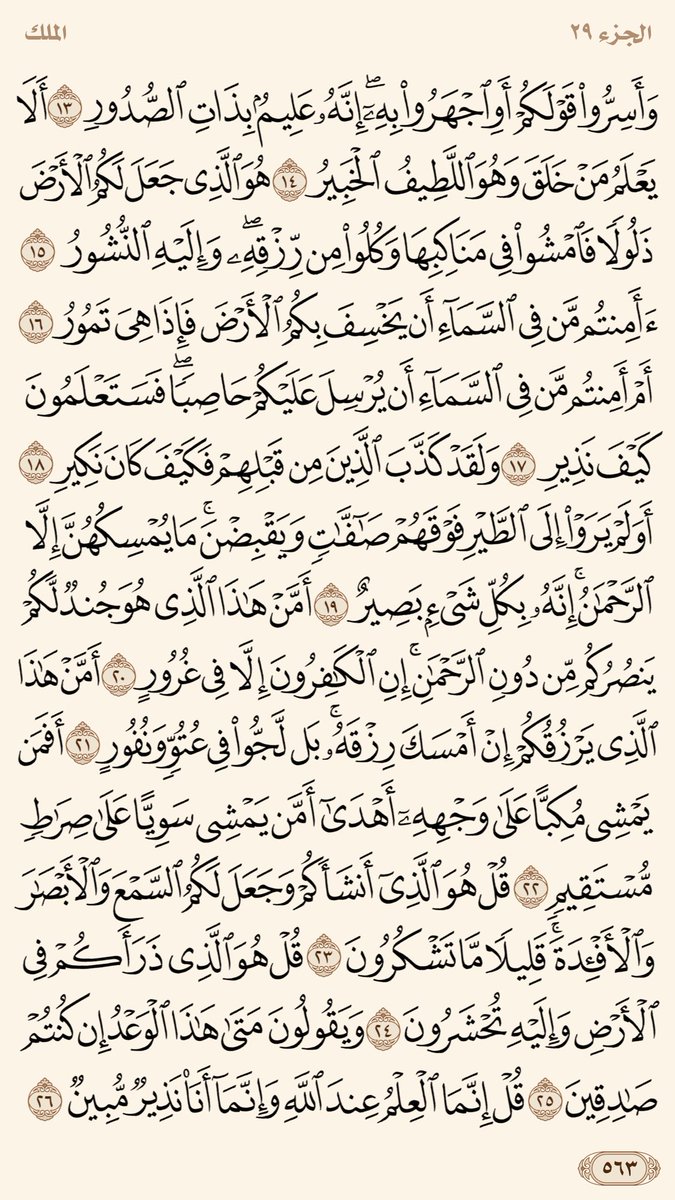 الجزء ٢٩ الملك
وَأَسِرُّوا۟ قَوْلَكُمْ أَوِ ٱجْهَرُوا۟ بِهِۦٓ ۖ إِنَّهُۥ عَلِيمٌۢ بِذَاتِ ٱلصُّدُورِ ١٣ أَلَا
يَعْلَمُ مَنْ خَلَقَ وَهُوَ ٱللَّطِيفُ ٱلْخَبِيرُ ١٤ هُوَ ٱلَّذِى جَعَلَ لَكُمُ ٱلْأَرْضَ
ذَلُولًا فَٱمْشُوا۟ فِى مَنَاكِبِهَا وَكُلُوا۟ مِن رِّزْقِهِۦ ۖ وَإِلَيْهِ ٱلنُّشُورُ ١٥
ءَأَمِنتُم مَّن فِى ٱلسَّمَآءِ أَن يَخْسِفَ بِكُمُ ٱلْأَرْضَ فَإِذَا هِىَ تَمُورُ ١٦
أَمْ أَمِنتُم مَّن فِى ٱلسَّمَآءِ أَن يُرْسِلَ عَلَيْكُمْ حَاصِبًا ۖ فَسَتَعْلَمُونَ
كَيْفَ نَذِيرِ ١٧ وَلَقَدْ كَذَّبَ ٱلَّذِينَ مِن قَبْلِهِمْ فَكَيْفَ كَانَ نَكِيرِ ١٨
أَوَلَمْ يَرَوْا۟ إِلَى ٱلطَّيْرِ فَوْقَهُمْ صَٰٓفَّٰتٍ وَيَقْبِضْنَ ۚ مَا يُمْسِكُهُنَّ إِلَّا
ٱلرَّحْمَٰنُ ۚ إِنَّهُۥ بِكُلِّ شَىْءٍۭ بَصِيرٌ ١٩ أَمَّنْ هَٰذَا ٱلَّذِى هُوَ جُندٌ لَّكُمْ
يَنصُرُكُم مِّن دُونِ ٱلرَّحْمَٰنِ ۚ إِنِ ٱلْكَٰفِرُونَ إِلَّا فِى غُرُورٍ ٢٠ أَمَّنْ هَٰذَا
ٱلَّذِى يَرْزُقُكُمْ إِنْ أَمْسَكَ رِزْقَهُۥ ۚ بَل لَّجُّوا۟ فِى عُتُوٍّ وَنُفُورٍ ٢١ أَفَمَن
يَمْشِى مُكِبًّا عَلَىٰ وَجْهِهِۦٓ أَهْدَىٰٓ أَمَّن يَمْشِى سَوِيًّا عَلَىٰ صِرَٰطٍ
مُّسْتَقِيمٍ ٢٢ قُلْ هُوَ ٱلَّذِىٓ أَنشَأَكُمْ وَجَعَلَ لَكُمُ ٱلسَّمْعَ وَٱلْأَبْصَٰرَ
وَٱلْأَفْـِٔدَةَ ۖ قَلِيلًا مَّا تَشْكُرُونَ ٢٣ قُلْ هُوَ ٱلَّذِى ذَرَأَكُمْ فِى
ٱلْأَرْضِ وَإِلَيْهِ تُحْشَرُونَ ٢٤ وَيَقُولُونَ مَتَىٰ هَٰذَا ٱلْوَعْدُ إِن كُنتُمْ
صَٰدِقِينَ ٢٥ قُلْ إِنَّمَا ٱلْعِلْمُ عِندَ ٱللَّهِ وَإِنَّمَآ أَنَا۠ نَذِيرٌ مُّبِينٌ ٢٦
٥٦٣